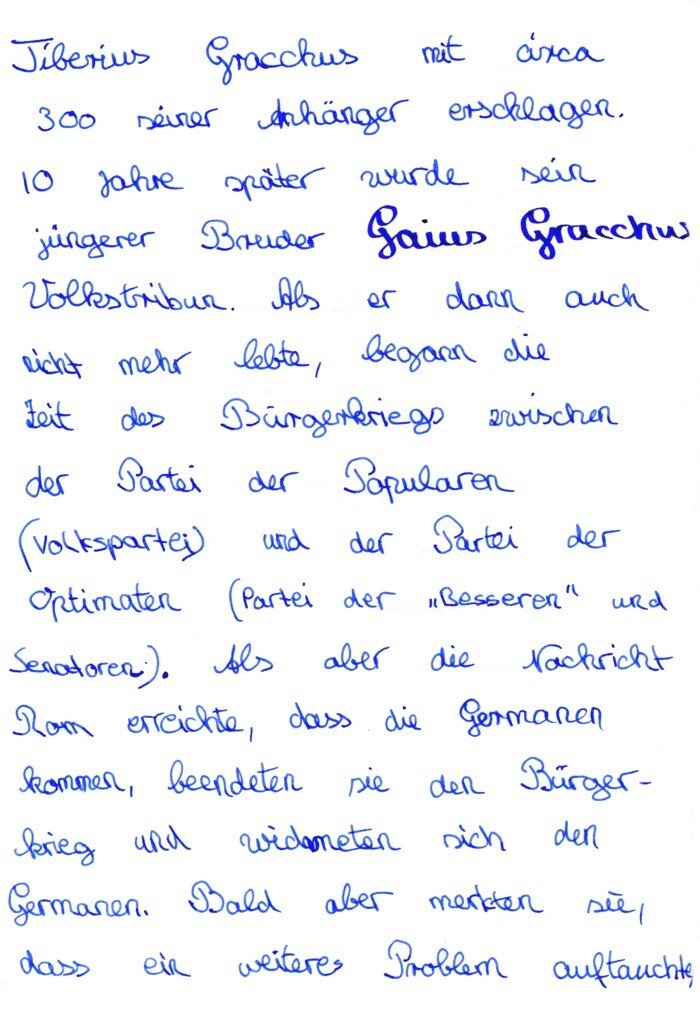 Tiberius Gracchus mit circa
300 seiner Anhänger erschlagen.
10 Jahre später wurde sein
jüngerer Bruder Gaius Gracchus
Volkstribun. Als er dann auch
nicht mehr lebte, begann die
Zeit des Bürgerkriegs zwischen
der Partei der Popularen
(Volkspartei) und der Partei der
Optimaten (Partei der „Besseren" und
Senatoren). Als aber die Nachricht
Rom erreichte, dass die Germanen
kommen, beendeten sie den Bürger-
krieg und widmeten sich den
Germanen. Bald aber merkten sie,
dass ein weiteres Problem auftauchte,